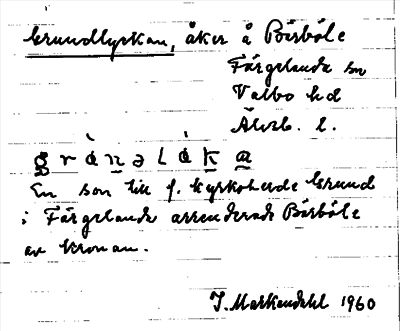 Grundlyckan, åker å Bärböle
Färgelanda sn
Valbo hd
Älvsb. l.
En son till f. kyrkoherde Grund
i Färgelanda arrenderade Bärböle
av kronan.
J. Markendahl 1960